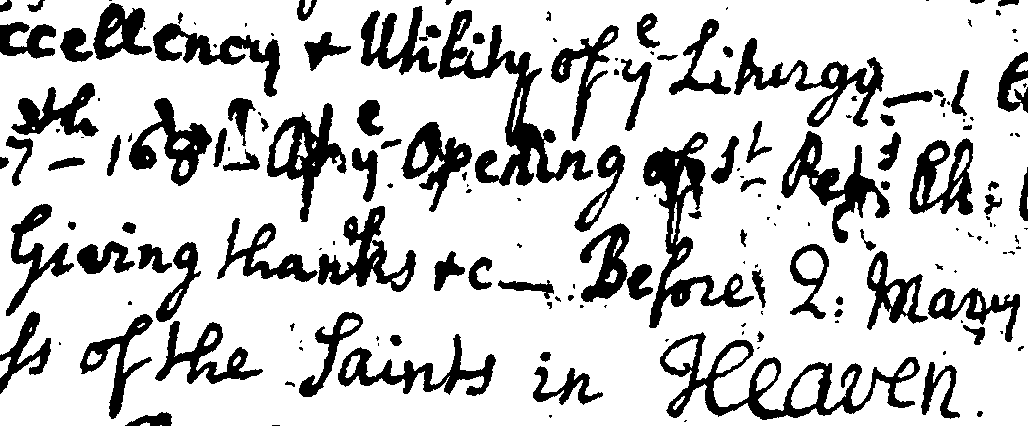 ccellency & Utility of yᵉ Liturgy — 1
7th — 1681 At yᵉ Opening of Sᵗ Petʳˢ Ch:
Giving thanks &c — Before Q: Mary
ss of the Saints in Heaven.